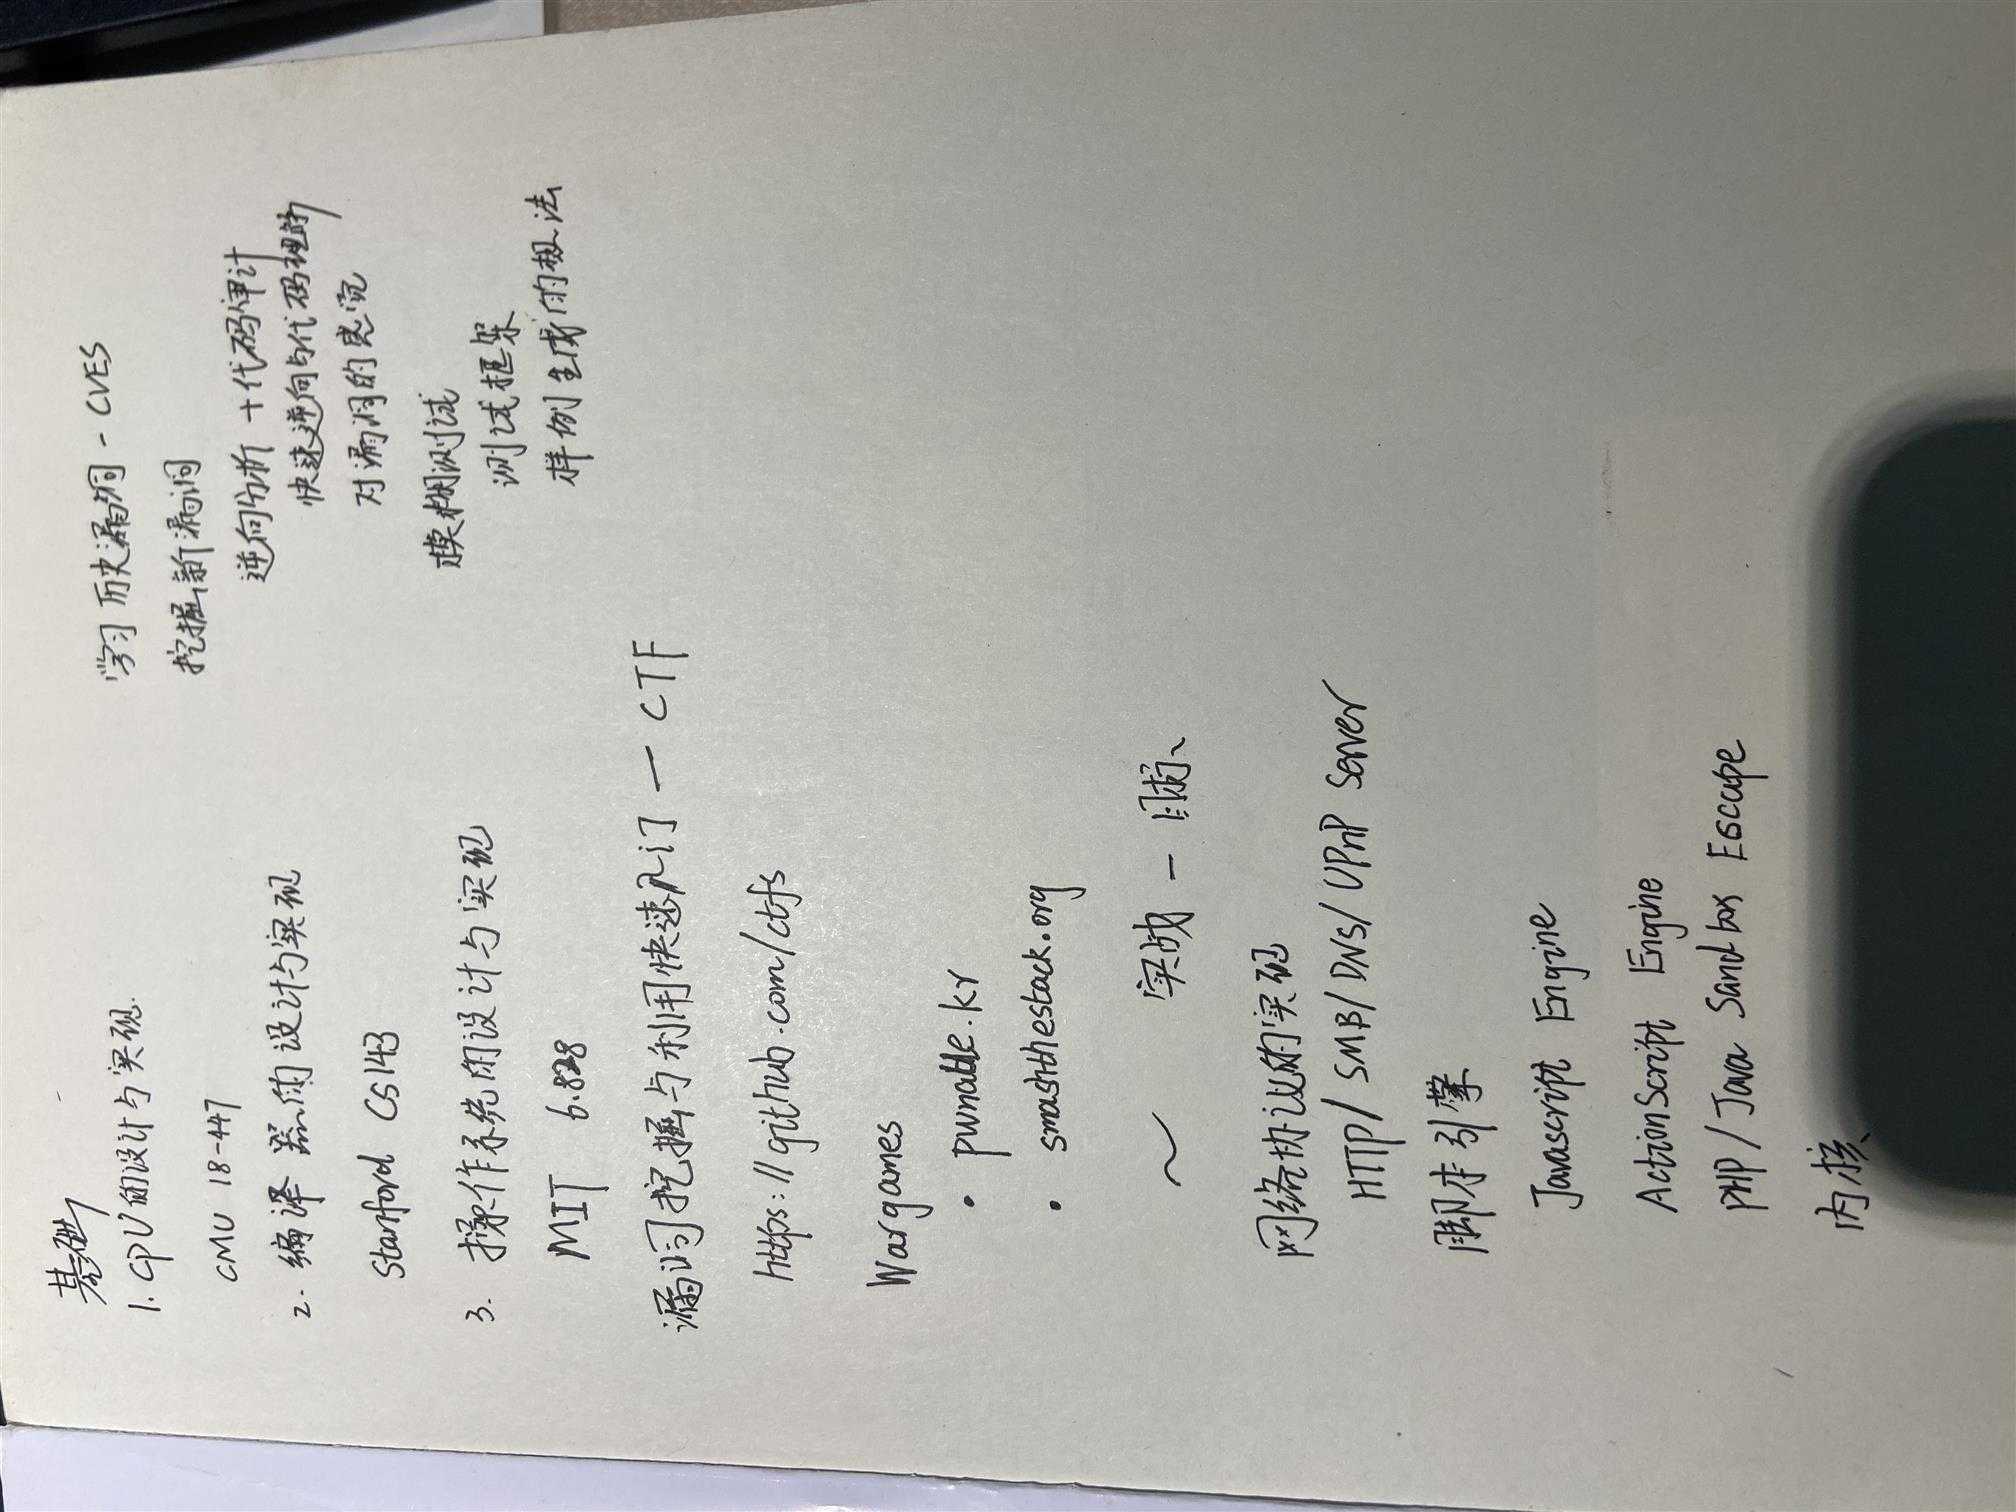 基础
1. CPU的设计与实现.
CMU 18-447
2. 编译器的设计与实现
Stanford CS143
3. 操作系统的设计与实现
MIT 6.828
漏洞挖掘与利用快速入门 — CTF
https://github.com/ctfs
Wargames
• pwnable.kr
• smashthestack.org
~ 实战 —
网络协议的实现
HTTP/SMB/DNS/UPnP Server
脚本引擎
Javascript Engine
ActionScript Engine
PHP/Java Sandbox Escape
内核
学习历史漏洞 - CVES
挖掘新漏洞
逆向分析 + 代码审计
快速逆向与代码理的
对漏洞的感觉
模糊测试
测试框架
样例生成的极法